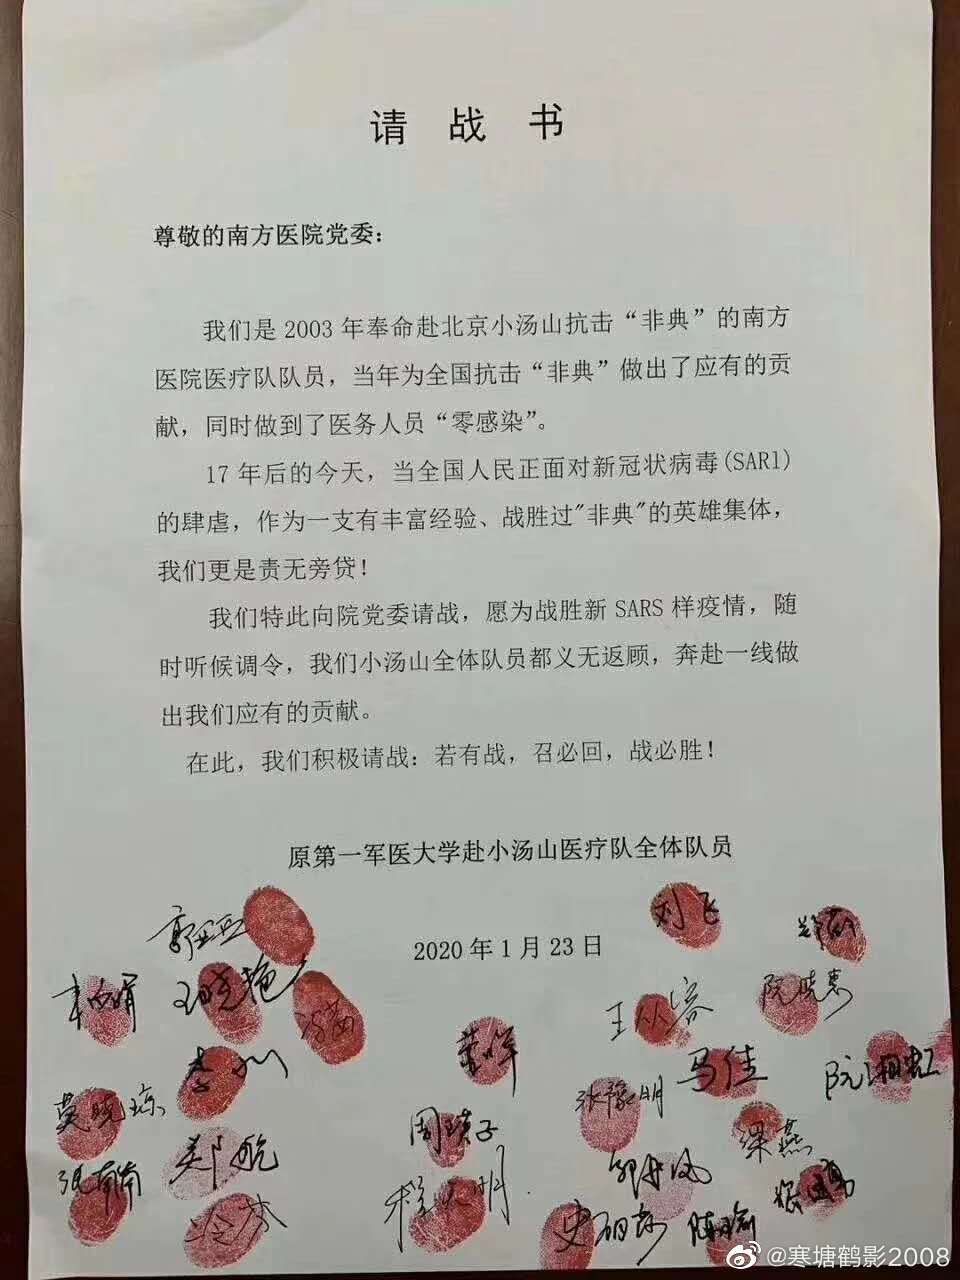 请战书
尊敬的南方医院党委：
我们是2003年奉命赴北京小汤山抗击“非典”的南方
医院医疗队队员，当年为全国抗击“非典”做出了应有的贡
献，同时做到了医务人员“零感染”。
17年后的今天，当全国人民正面对新冠状病毒(SARI)
的肆虐，作为一支有丰富经验、战胜过"非典"的英雄集体，
我们更是责无旁贷！
我们特此向院党委请战，愿为战胜新SARS样疫情，随
时听候调令，我们小汤山全体队员都义无返顾，奔赴一线做
出我们应有的贡献。
在此，我们积极请战：若有战，召必回，战必胜！
原第一军医大学赴小汤山医疗队全体队员
郭亚
刘飞
2020年1月23日
王晓艳
王从容
阮晓惠
马佳
张豫明
阮湘虹
莫晓琼
周瑱子
梁燕
张南南
郑航
@寒塘鹤影2008